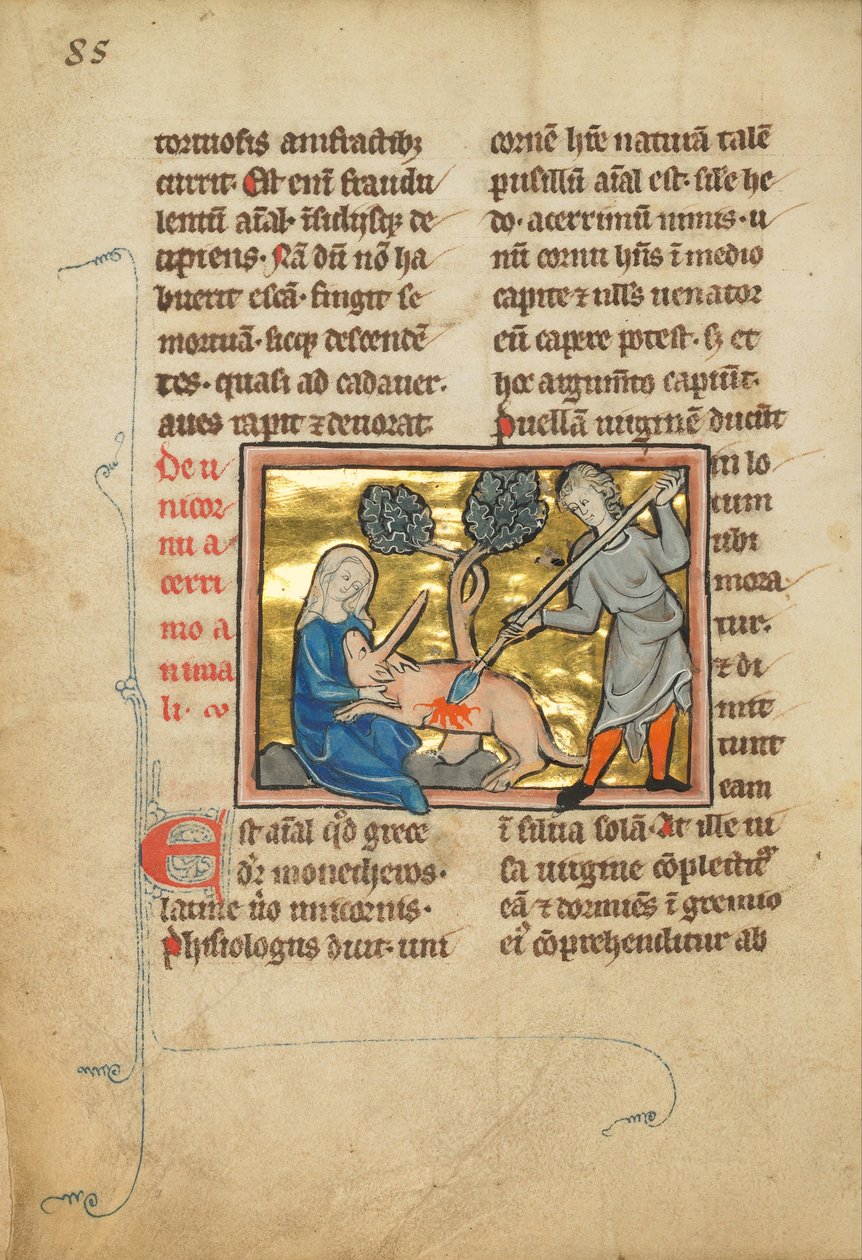 85
tortuosis amfractibꝫ
currit· Est eni͞ fraudu
lentu͞ ai͞al· i͞sidijsqꝫ de
cipiens· Na͞ du͞ no͞ ha
buerit esca͞· fingit se
mortua͞· sicqꝫ descende͞
tes· quasi ad cadauer·
aues rapit ⁊ deuorat·
De u
nicor
nu a
cerri
mo a
nima
li·
Est ai͞al qd͞ grece
dr͞ monecheros·
latine u͞o unicornis·
Phisiologus dicit· uni
corne͞ hr͞e natura͞ tale͞
pusillu͞ ai͞al est· sil͞e he
do· acerrimu͞ nimis· u
nu͞ cornu hn͞s i͞ medio
capite ⁊ nll͞s uenator
eu͞ capere potest· sꝫ et
hoc argum͞to capiu͞t·
Puella͞ uirgine͞ ducu͞t
in lo
cum
ubi
mora
tur·
⁊ di
mit
tunt
eam
i͞ silua sola͞· At ille ui
sa uirgine co͞plectit᷑
ea͞ ⁊ dormie͞s i͞ gremio
ei᷒ co͞prehenditur ab